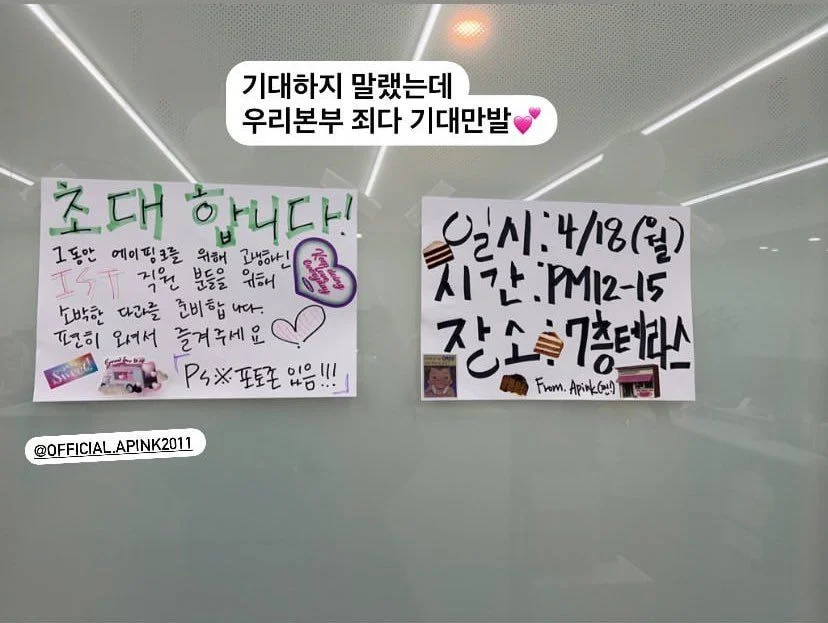 기대하지 말랬는데
우리본부 죄다 기대만발💕
초대 합니다!
그동안 에이핑크를 위해 고생하신
IST 직원 분들을 위해
소박한 다과를 준비합니다.
편히 오셔서 즐겨주세요
Sweet!
Ps※포토존 있음!!!
일시:4/18(월)
시간:PM12-15
장소:7층테라스
From. Apink
@OFFICIAL.APINK2011